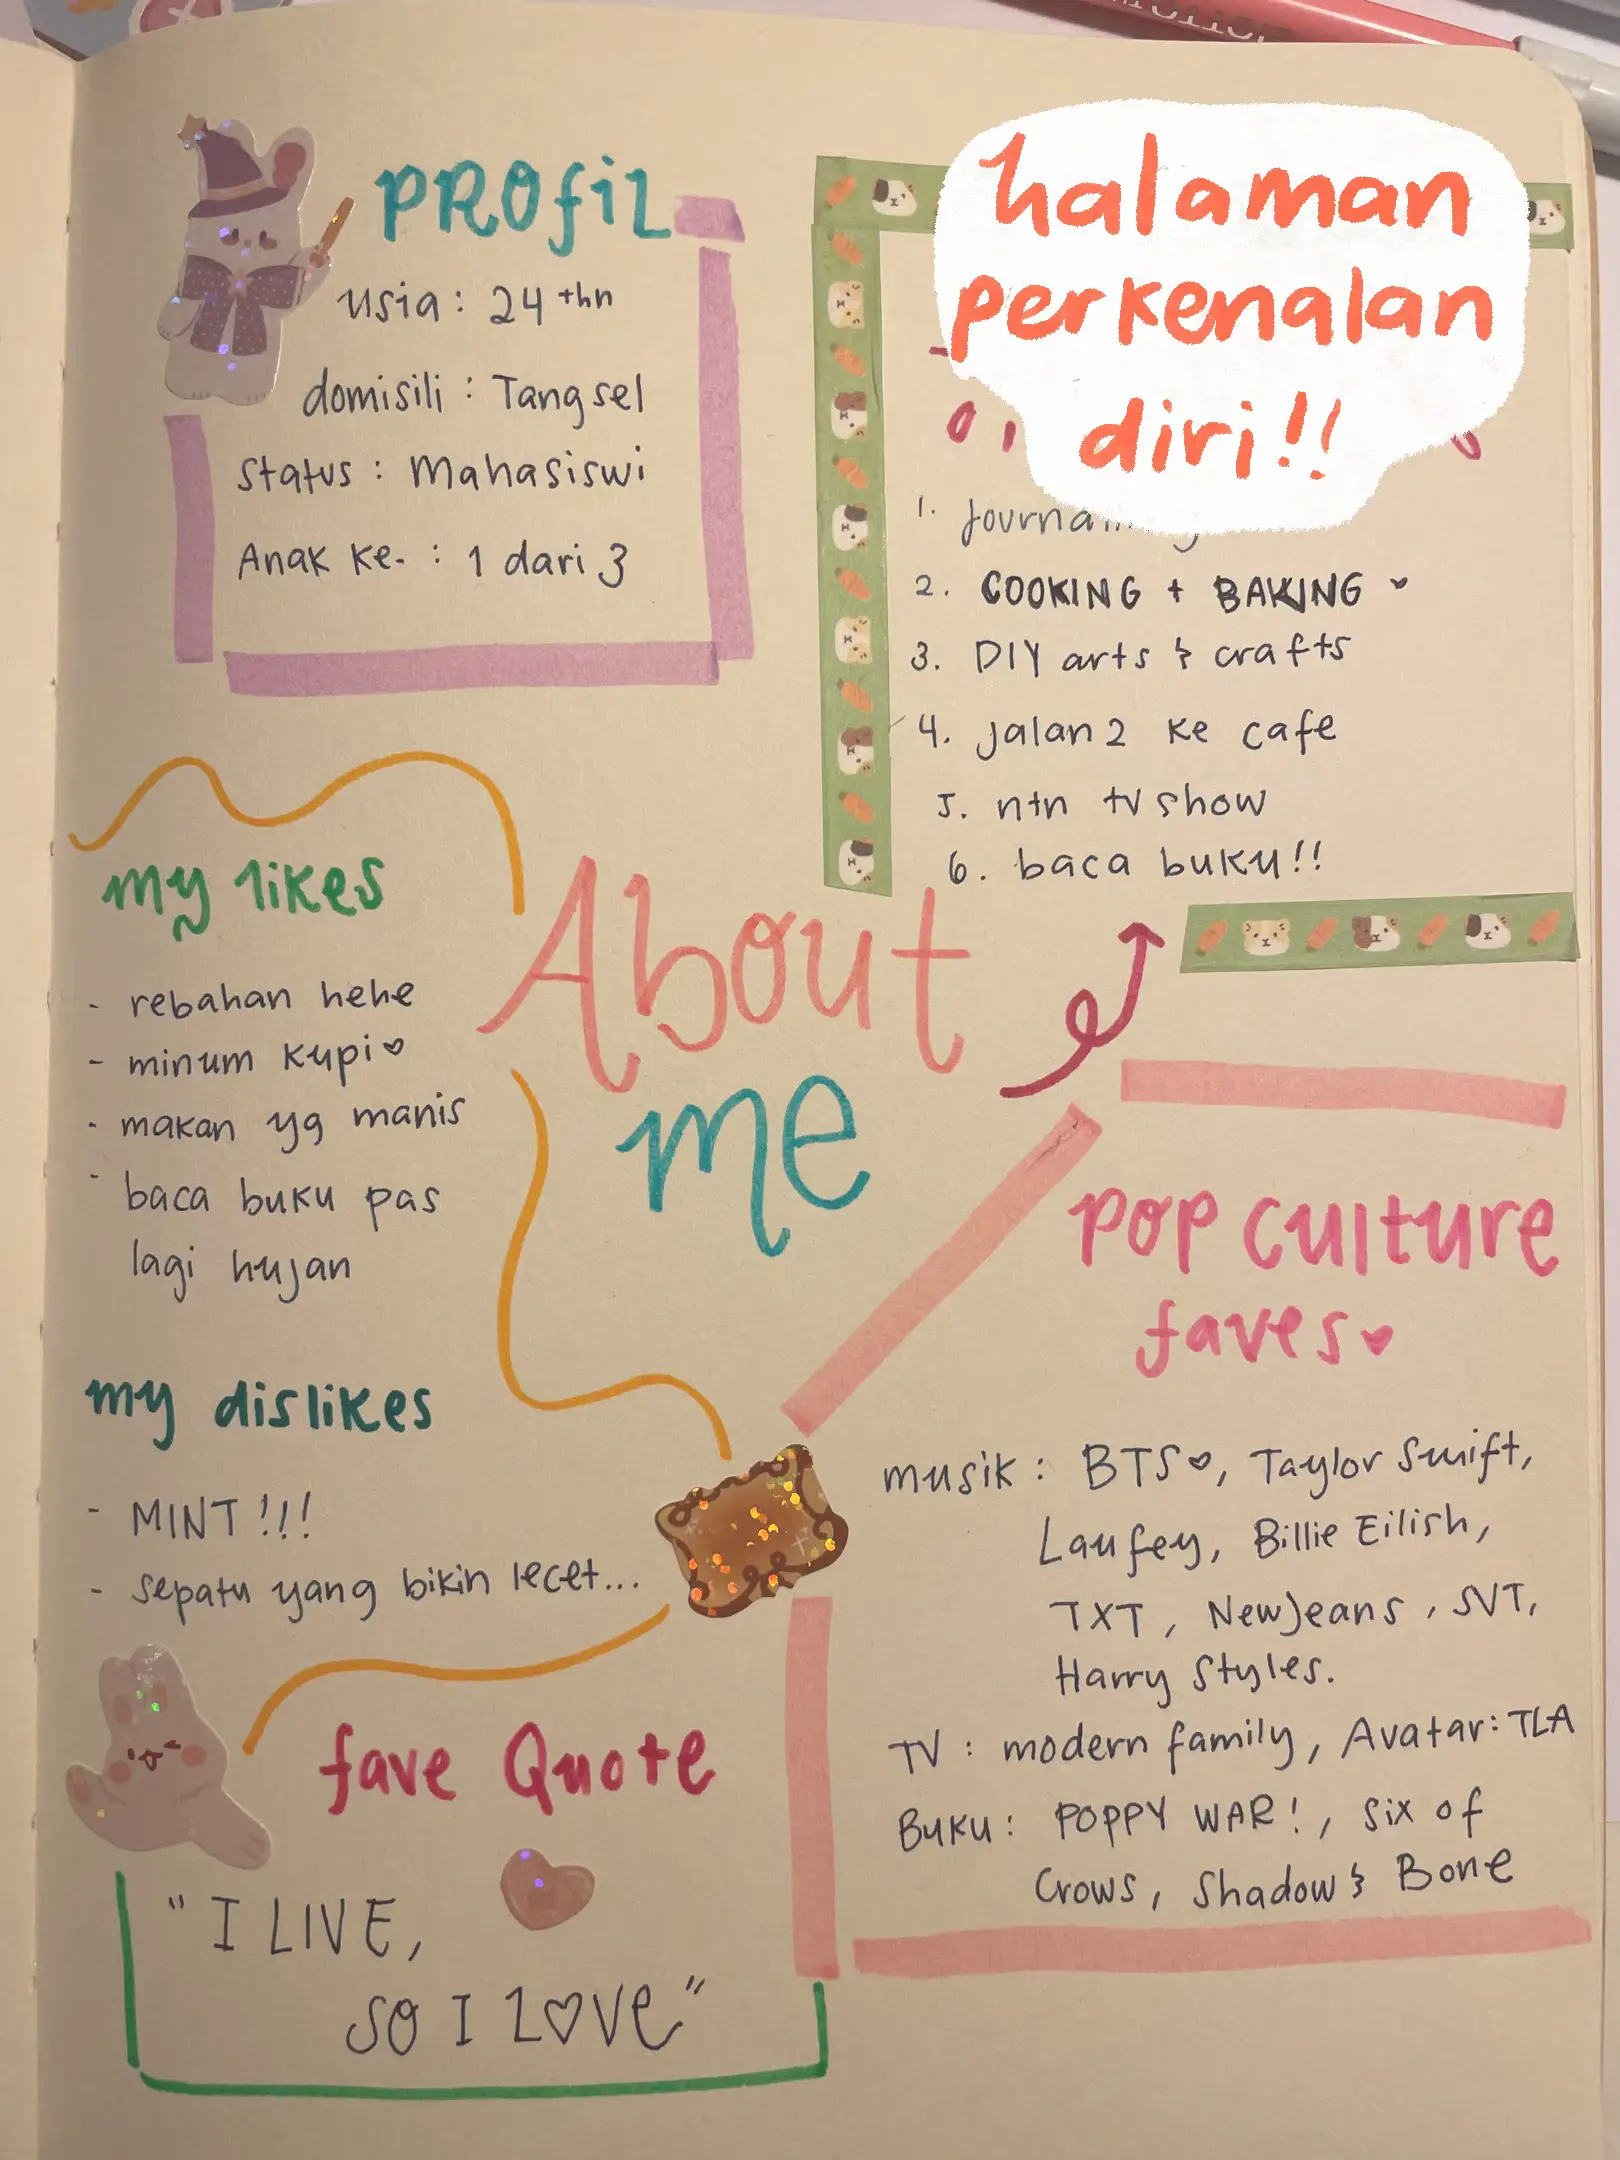 halaman
perkenalan
diri!!
PROfiL
usia : 24 thn
domisili : Tangsel
Status : Mahasiswi
Anak Ke- : 1 dari 3
1.
2. COOKING + BAKING
3. DIY arts & crafts
4. jalan2 ke cafe
5. ntn tv show
6. baca buku!!
About
me
my likes
- rebahan hehe
- minum kupi
- makan yg manis
- baca buku pas
lagi hujan
my dislikes
- MINT!!!
- sepatu yang bikin lecet...
fave Quote
"I LIVE,
SO I LOVE"
pop culture
faves
musik : BTS, Taylor Swift,
Laufey, Billie Eilish,
TXT, NewJeans, SVT,
Harry Styles.
TV : modern family, Avatar: TLA
Buku : POPPY WAR!, Six of
Crows, Shadow & Bone